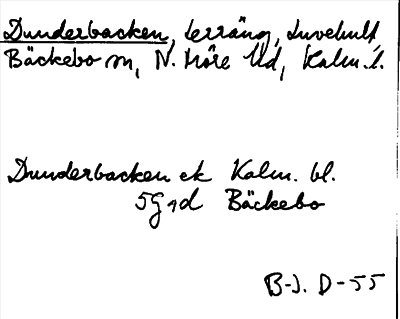 Dunderbacken, terräng, Luvehult,
Bäckebo sn, N. Möre hd, Kalm. l.
Dunderbacken ek Kalm. bl.
5G 9d Bäckebo
B-J. D-55